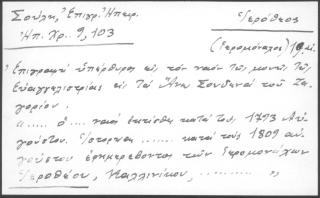 Σούλη, Ἐπιγρ. Ἠπειρ. Ἱερόθεος
Ἠπ. Χρ. 9, 103
(Ἱερομόναχος) 19 αἰ.
Ἐπιγραφή ὑπέρθυρος εἰς τόν ναόν τῆς μονῆς τῆς
Εὐαγγελιστρίας εἰς τά Ἄνω Σουδενά τοῦ Ζα-
γορίου.
"..... ὁ ναός ἐκτίσθη κατά τοῦ, 1793 Αὐ-
γούστου. Ἱστορήθη ...... κατά τούς 1809 αὐ-
γούστου ἐφημερεύοντος τῶν Ἱερομονάχων
Ἱεροθέου, Καλλινίκου, ........... "